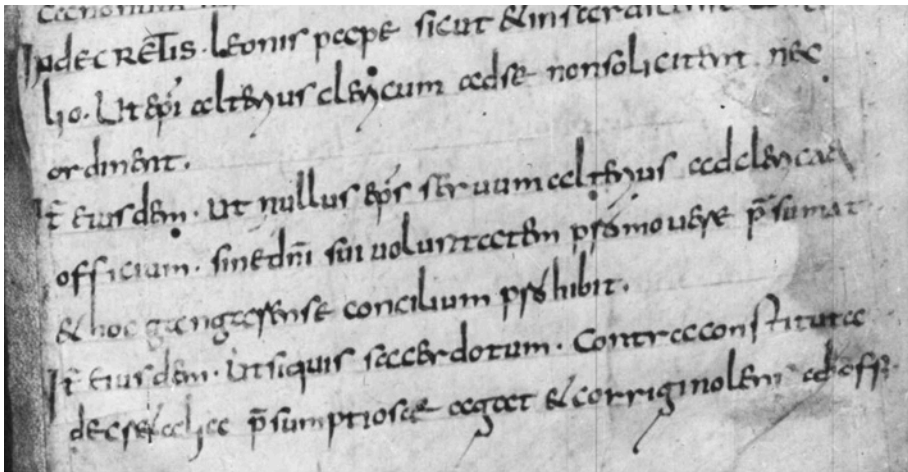 In decretis leonis pape sicut & in sardicense
lio. Ut epi alterius clericum ad se non sollicitent nec
ordinent.
It eiusdem. Ut nullus eps seruum alterius ad clericae
officium. sine dni sui voluntatem promouere psumat
& hoc gangarense concilium prohibit.
It eiusdem. Ut siquis sacerdotum. Contra constituta
decretalia psumptiosae agat & corrigi nolens ab offi